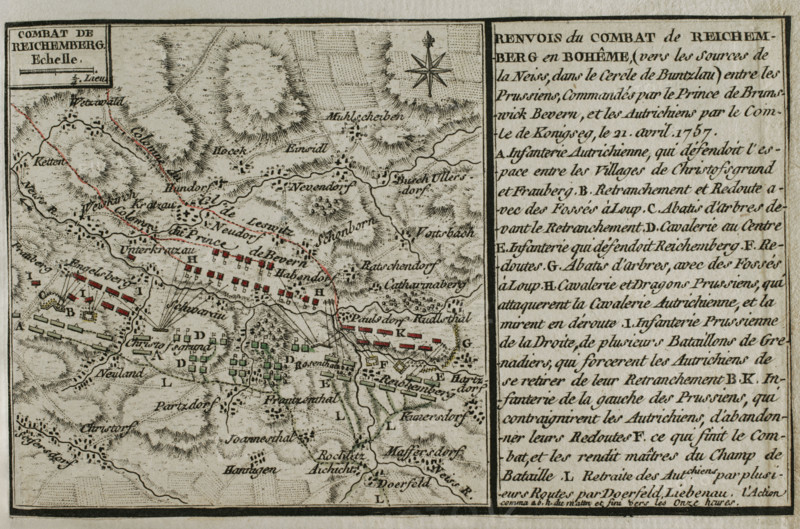 COMBAT DE
REICHEMBERG.
Echelle.
½ Lieue
Wetzwald
Ketten
Mühlscheiben
Hocek
Einsidl
Colonne du
Gl. de Leswitz
Colonne du Prince de Bevern
Hundorf
Nevendorf
Busch Ullers-
dorf
Neise R.
Weiskirch
Kratzau
Neudorf
Schonborn
Voitsbach
Unterkratzau
Frauberg
Engelsberg
Habendorf
Ratschendorf
Catharinaberg
I
I
H
C
B
Schwarau
Paulsdorf
Rudlsthal
K
A
Christofsgrund
D
D
D
G
A
Rosenthal
F
E
Neuland
L
L
E
Reichemberg
Hartz-
dorf
Partzdorf
Frantzenthal
L
L
Kunersdorf
Christorf
Joannesthal
Seifersdorf
Rochlitz
Maffersdorf
Hannigen
Aichicht
Weiss R.
Doerfeld
L
RENVOIS du COMBAT de REICHEM-
BERG en BOHÊME, (vers les Sources de
la Neiss, dans le Cercle de Buntzlau) entre les
Prussiens, Commandés par le Prince de Bruns-
wick Bevern, et les Autrichiens par le Com-
te de Konigseg, le 21. avril. 1757.
A. Infanterie Autrichienne, qui défendoit l'es-
pace entre les Villages de Christofsgrund
et Frauberg. B. Retranchement et Redoute a-
vec des Fossés à Loup. C. Abatis d'arbres de-
vant le Retranchement. D. Cavalerie au Centre
E. Infanterie qui défendoit Reichemberg. F. Re-
doutes. G. Abatis d'arbres, avec des Fossés
à Loup. H. Cavalerie et Dragons Prussiens, qui
attaquerent la Cavalerie Autrichienne, et la
mirent en déroute. I. Infanterie Prussienne
de la Droite, de plusieurs Bataillons de Gre-
nadiers, qui forcerent les Autrichiens de
se retirer de leur Retranchement B. K. In-
fanterie de la gauche des Prussiens, qui
contraignirent les Autrichiens, d'abandon-
ner leurs Redoutes F. ce qui finit le Com-
bat, et les rendit maîtres du Champ de
Bataille. L. Retraite des Autchiens par plusi-
eurs Routes par Doerfeld, Liebenau. l'Action
comma à 6. h. du matin et fini vers les Onze heures.